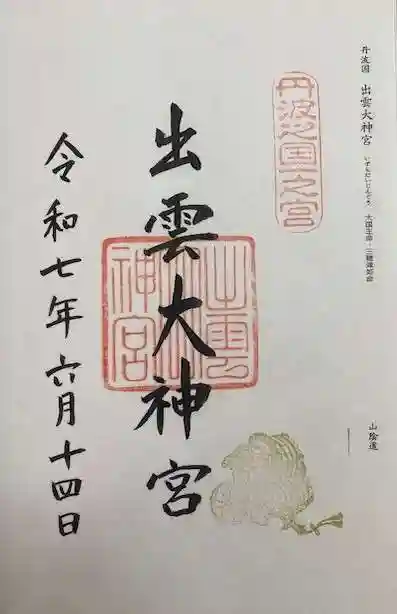 丹波國 出雲大神宮 いずもだいじんぐう 大国主命・三穂津姫命
山陰道
丹波国之宮
出雲大神宮
出雲大神宮
令和七年六月十四日